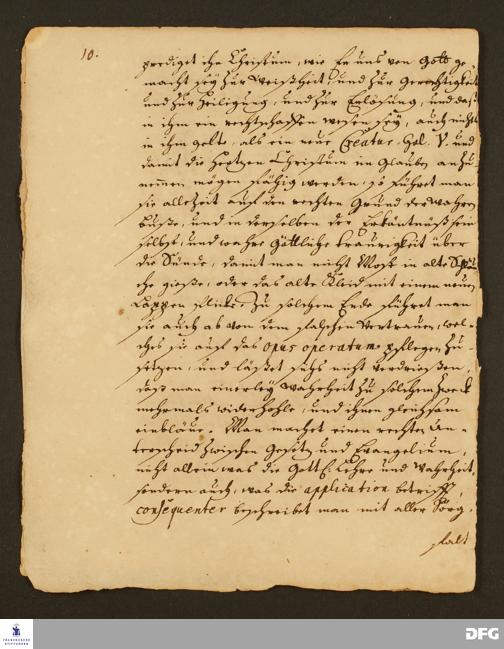 10.
prediget ihn Christum, wie Er uns von Gott ge-
macht sey zur Weißheit, und zur Gerechtigkeit
und zur Heiligung, und zur Erlösung, und daß
in ihm ein rechtschaffen wesen sey, auch nichts
in ihm gelte, als ein neue Creatur. Gal. V. und
damit die Hertzen Christum im Glauben anzu-
nehmen mögen fähig werden, so führet man
sie allezeit auf den rechten Grund der wahren
Buße, und in derselben der Erkäntnüß sein
selbst, und wahre Göttliche traurigkeit über
die Sünde, damit man nicht Most in alte Schläu-
che gieße, oder das alte Kleid mit einem neuen
Lappen flicke. Zu solchem Ende führet man
sie auch ab von dem falschen Vertrauen, wel-
ches sie auf das opus operatum pflegen zu
setzen, und läßet sichs nicht verdriessen,
daß man einerley Wahrheit zu solchem Zweck
mehrmals wiederhohle, und ihnen gleichsam
einbläue. Man machet einen rechten Un-
terscheid zwischen Gesetz und Evangelium,
nicht allein was die Göttl. Lehre und Wahrheit,
sondern auch, was die application betrifft,
consequenter beschreibet man mit aller Sorg-
falt
FRANCKESCHE
STIFTUNGEN
DFG